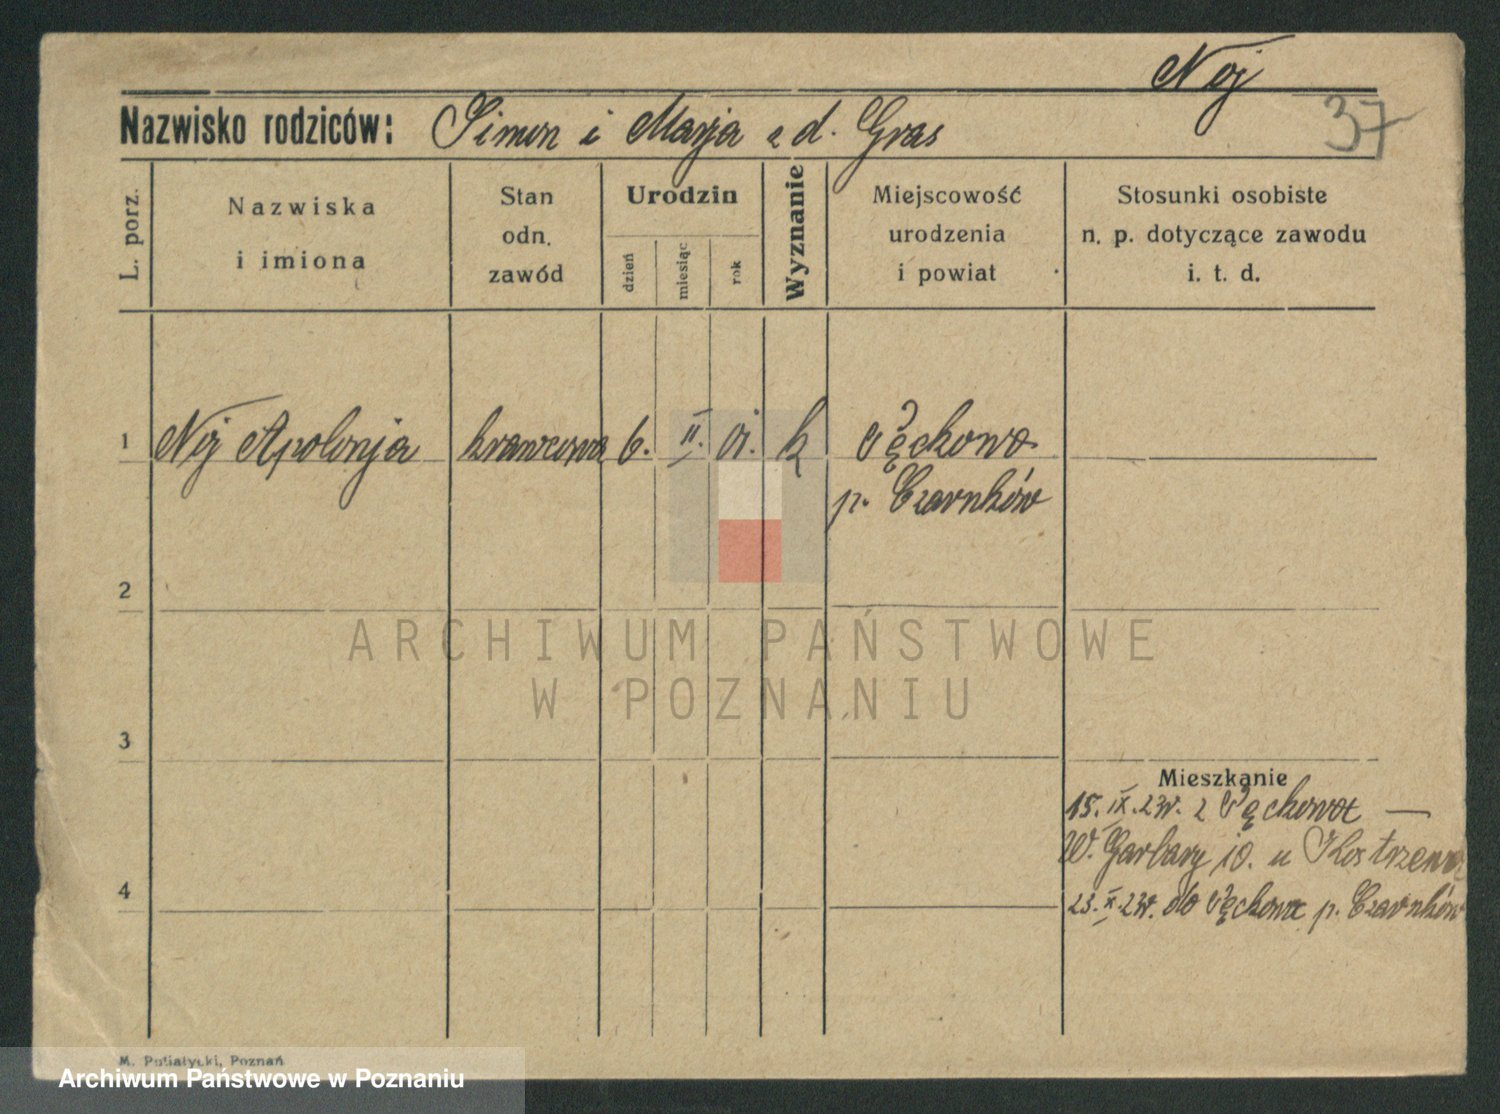 Noj
37
Nazwisko rodziców: Simon i Marja z d. Gras
L. porz.
Nazwiska
i imiona
Stan
odn.
zawód
Urodzin
dzień
miesiąc
rok
Wyznanie
Miejscowość
urodzenia
i powiat
Stosunki osobiste
n. p. dotyczące zawodu
i. t. d.
1 Noj Apolonja krawcowa 6. II. 01. k
p. Czarnków
2
3
4
Mieszkanie
15. IX. 23r. z
W. Garbary 10. u Kostrzewa
23. X. 23r. do p. Czarnków
M. Putiatycki, Poznań
ARCHIWUM PAŃSTWOWE
W POZNANIU
Archiwum Państwowe w Poznaniu